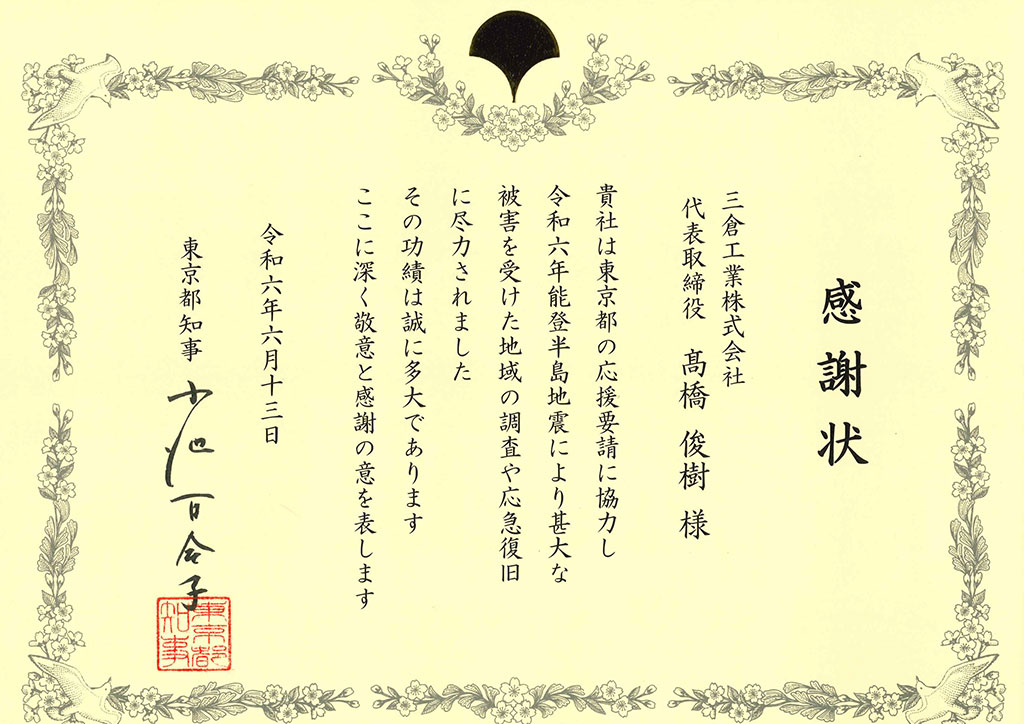 感謝状
三倉工業株式会社
代表取締役 髙橋 俊樹 様
貴社は東京都の応援要請に協力し
令和六年能登半島地震により甚大な
被害を受けた地域の調査や応急復旧
に尽力されました
その功績は誠に多大であります
ここに深く敬意と感謝の意を表します
令和六年六月十三日
東京都知事 小池百合子
東京都
知事